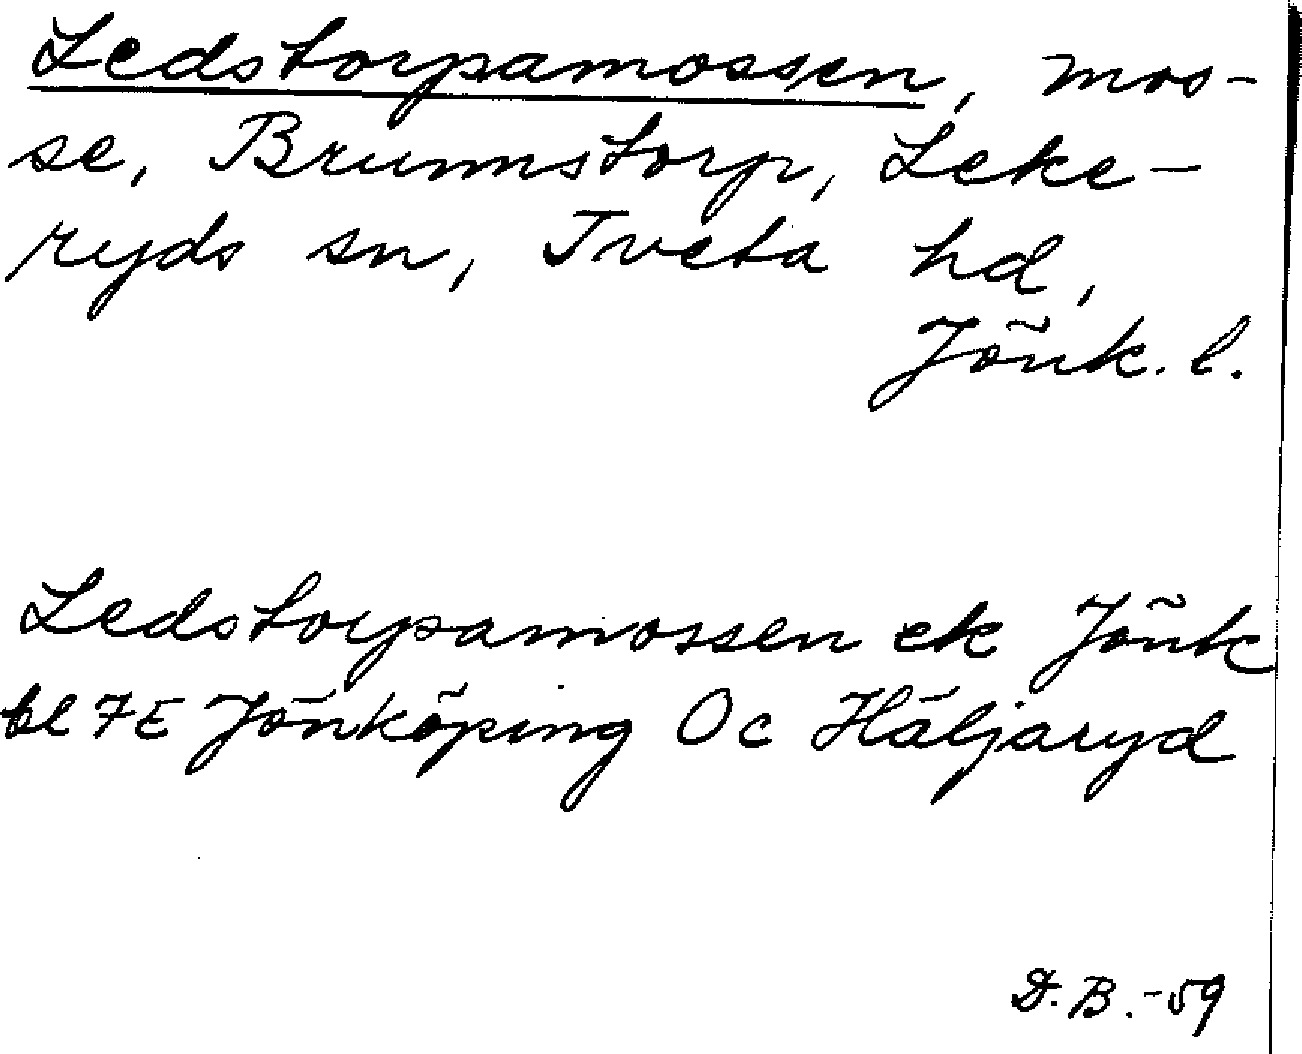 Ledstorpamossen, mos-
se, Brunnstorp, Leke-
ryds sn, Tveta hd,
Jönk. l.
Ledstorpamossen ek Jönk
bl 7E Jönköping 0c Häljaryd
D.B.-59